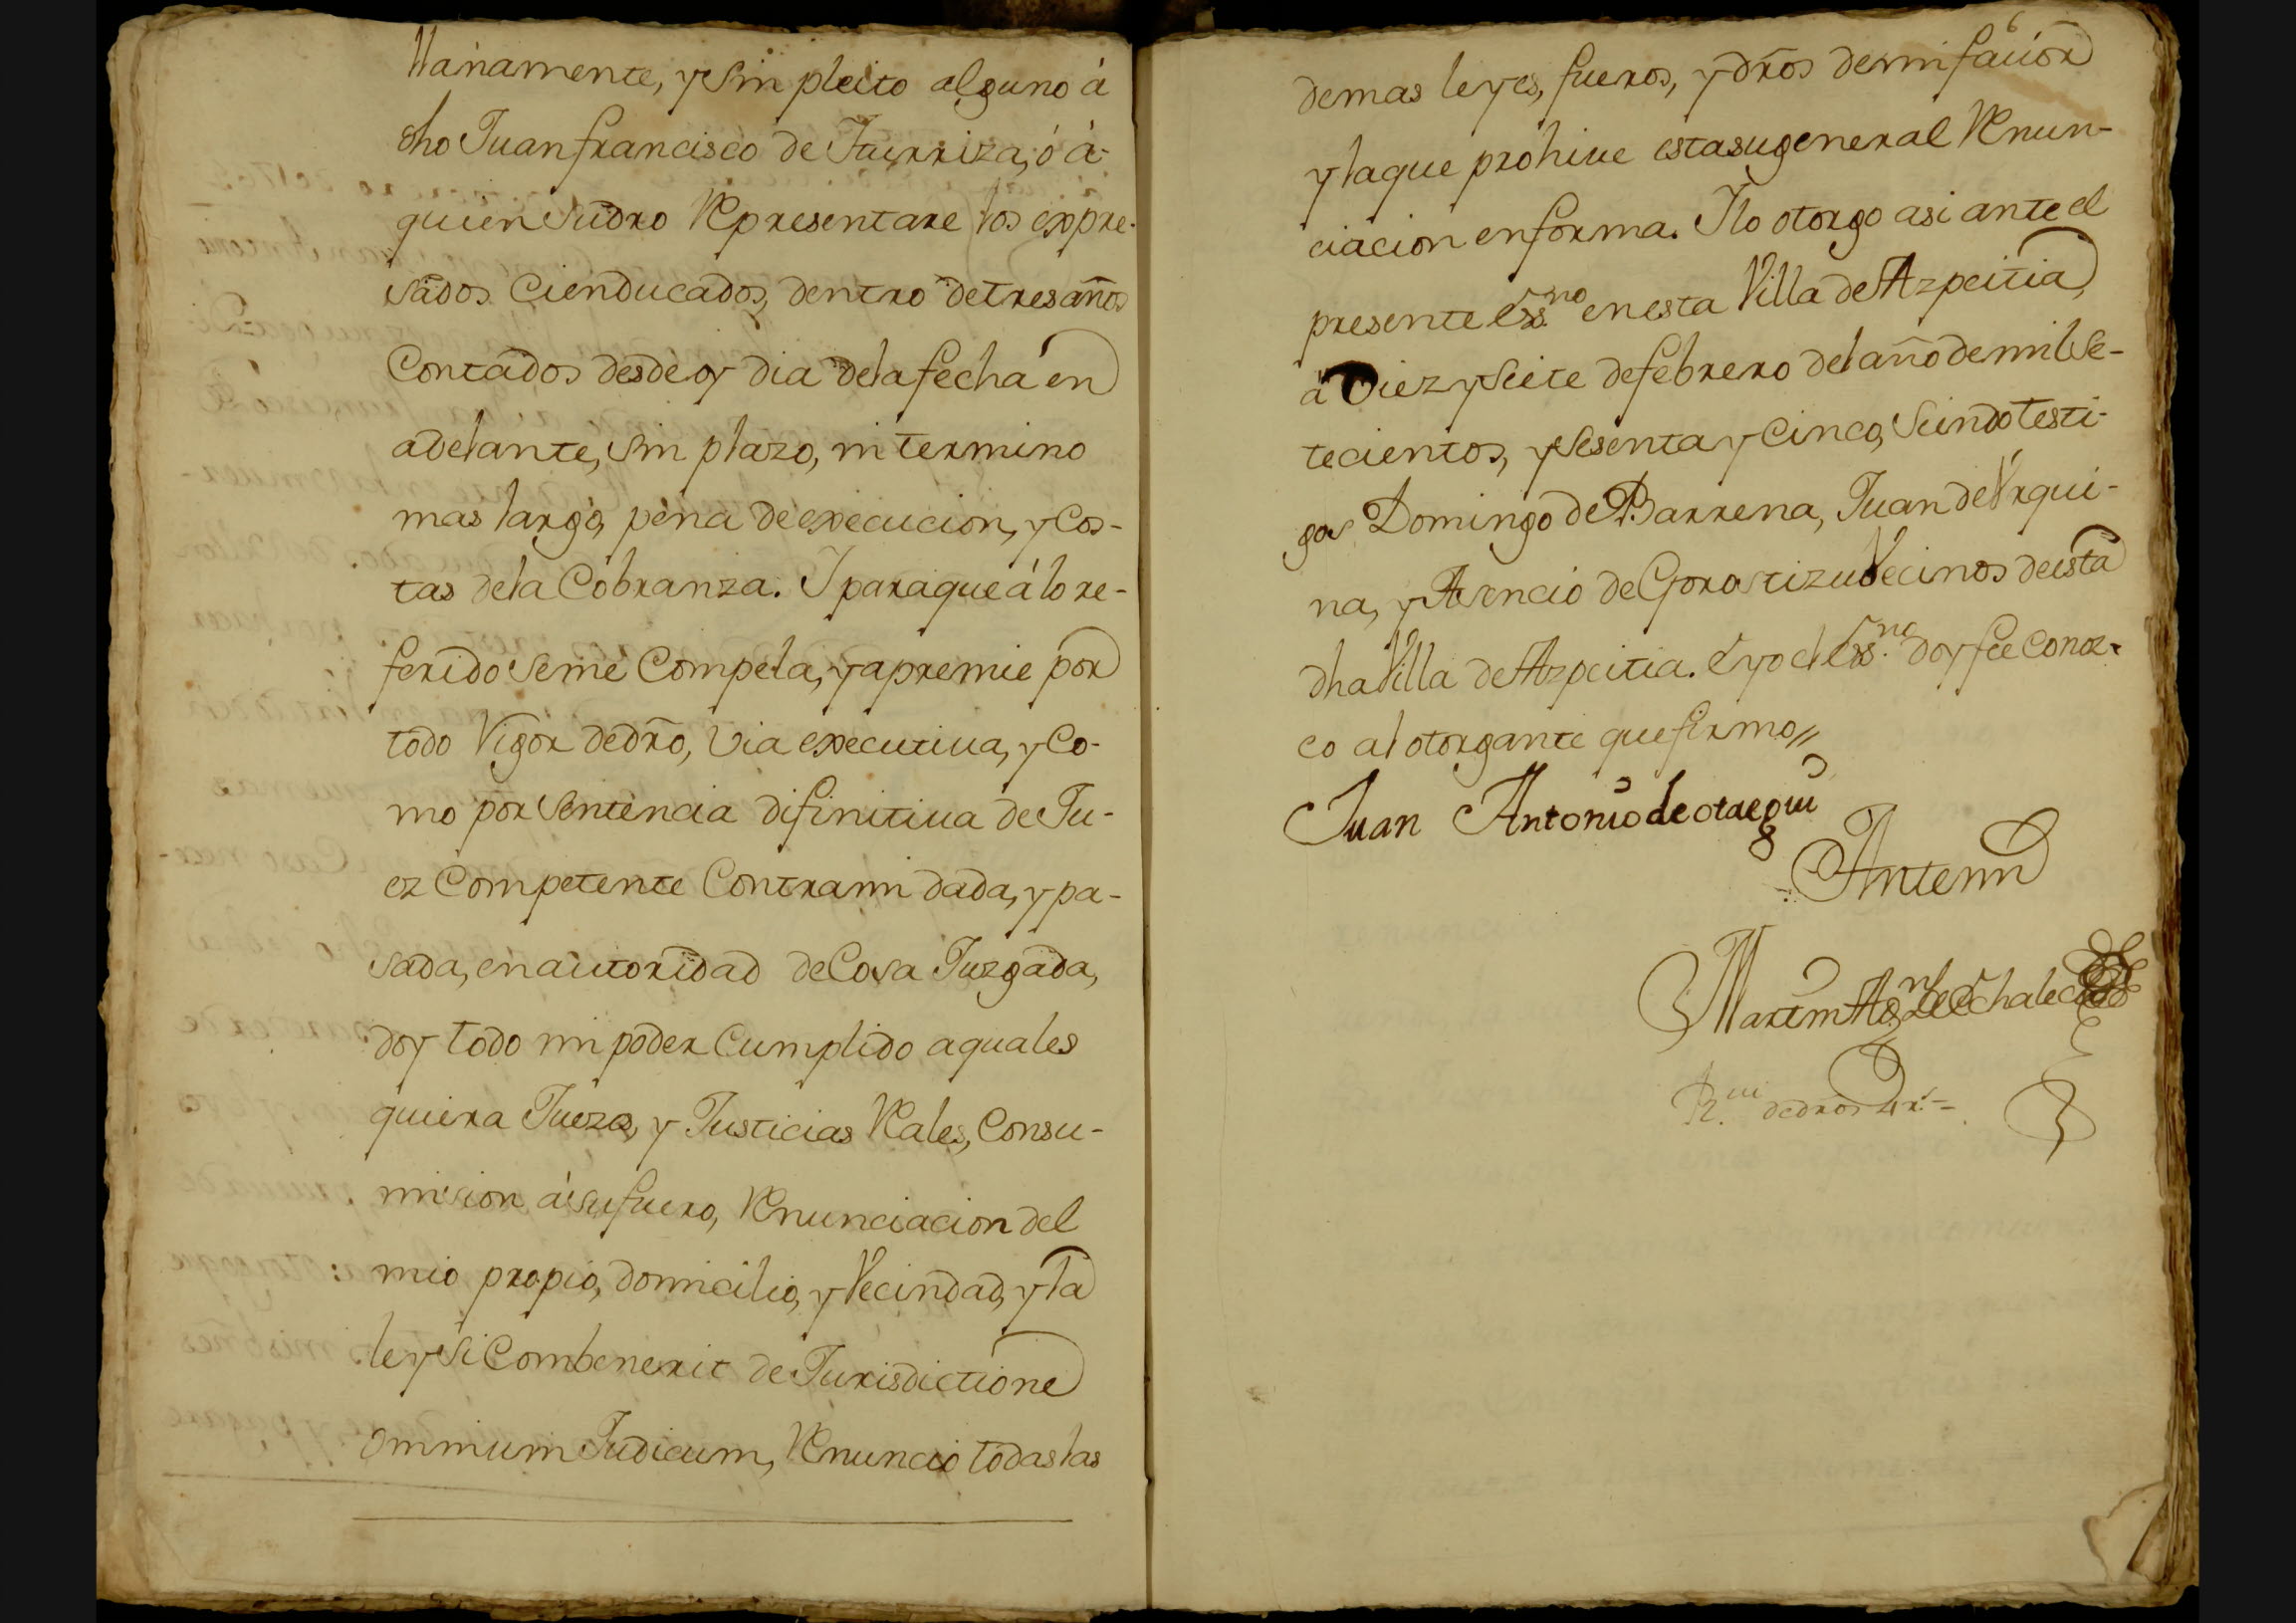 llanamente, y sin pleito alguno á
dho Juan francisco de Iturriza, ó á
quien su dro Representare los expre-
sados Cien ducados, dentro de tres años
Contados desde oy dia de la fecha en
adelante, sin plazo, ni termino
mas largo, pena de execucion, y Cos-
tas de la Cobranza. I para que á lo re-
ferido se me Compela, y apremie por
todo Vigor de dro, via executiua, y Co-
mo por sentencia difinitiua de Ju-
ez Competente Contra mi dada, y pa-
sada, en autoridad de Cosa Juzgada,
doy todo mi poder Cumplido a quales
quiera Juezes, y Justicias Reales, Con su-
mision á su fuero, Renunciacion del
mio propio, domicilio, y Vecindad, y la
ley Si Combenerit de Jurisdictione
omnium Judicum, Renuncio todas las
6
demas leyes, fueros, y dros de mi fauor
y la que prohiue esta su general Renun-
ciacion en forma. I lo otorgo asi ante el
presente ess.no en esta Villa de Azpeitia,
á Diez y Siete de febrero del año de mil Se-
tecientos, y Sesenta y Cinco, Siendo Testi-
gos Domingo de Barrena, Juan de Vrqui-
na, y Asencio de Gorostizu Vecinos de esta
dha Villa de Azpeitia. E yo el Ess.no doy fee Conoz-
co al otorgante que firmo //
Juan Antonio de otaegui
Antemi
Martin Ag.n de Echalecu
R.ui de dros 4 r.s =